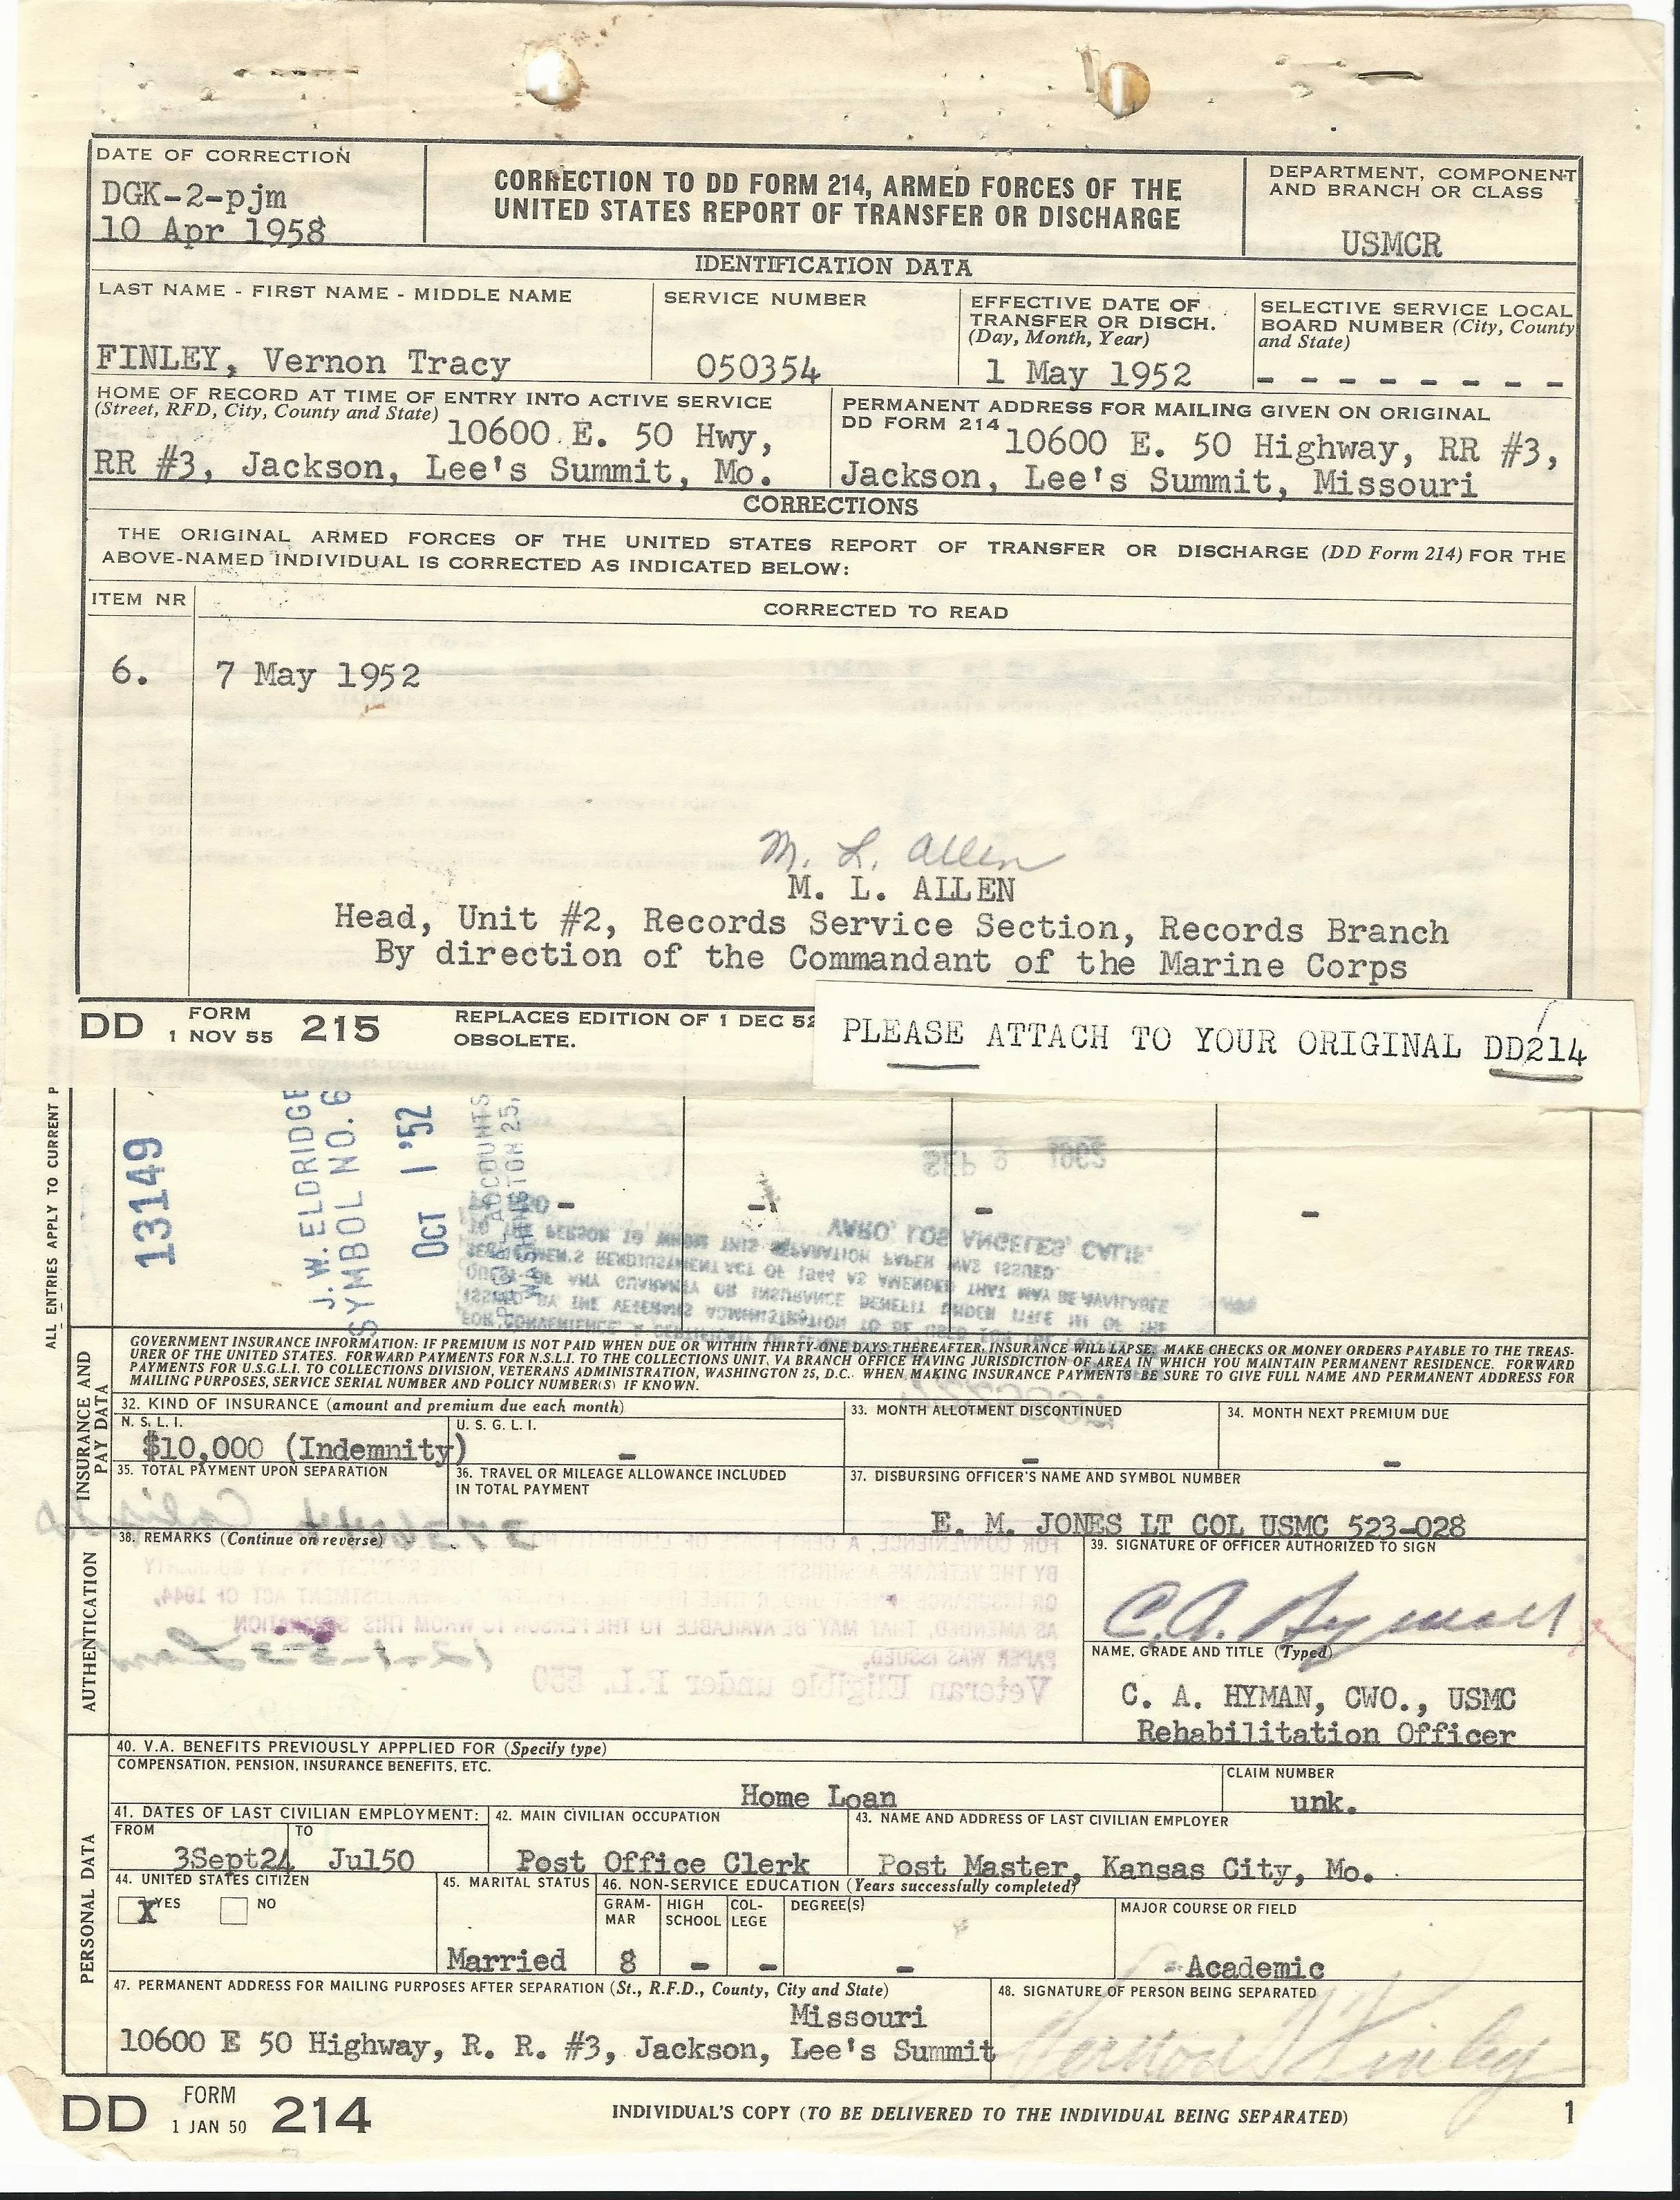 DATE OF CORRECTION
DGK-2-pjm
10 Apr 1958
CORRECTION TO DD FORM 214, ARMED FORCES OF THE
UNITED STATES REPORT OF TRANSFER OR DISCHARGE
DEPARTMENT, COMPONENT
AND BRANCH OR CLASS
USMCR
IDENTIFICATION DATA
LAST NAME - FIRST NAME - MIDDLE NAME
FINLEY, Vernon Tracy
SERVICE NUMBER
050354
EFFECTIVE DATE OF
TRANSFER OR DISCH.
(Day, Month, Year)
1 May 1952
SELECTIVE SERVICE LOCAL
BOARD NUMBER (City, County
and State)
- - - - - - - -
HOME OF RECORD AT TIME OF ENTRY INTO ACTIVE SERVICE
(Street, RFD, City, County and State) 10600 E. 50 Hwy,
RR #3, Jackson, Lee's Summit, Mo.
PERMANENT ADDRESS FOR MAILING GIVEN ON ORIGINAL
DD FORM 214 10600 E. 50 Highway, RR #3,
Jackson, Lee's Summit, Missouri
CORRECTIONS
THE ORIGINAL ARMED FORCES OF THE UNITED STATES REPORT OF TRANSFER OR DISCHARGE (DD Form 214) FOR THE
ABOVE-NAMED INDIVIDUAL IS CORRECTED AS INDICATED BELOW:
ITEM NR
CORRECTED TO READ
6. 7 May 1952
M. L. Allen
M. L. ALLEN
Head, Unit #2, Records Service Section, Records Branch
By direction of the Commandant of the Marine Corps
DD FORM 1 NOV 55 215
REPLACES EDITION OF 1 DEC 52
OBSOLETE.
PLEASE ATTACH TO YOUR ORIGINAL DD214
ALL ENTRIES APPLY TO CURRENT P
13149
J. W. ELDRIDGE
SYMBOL NO. 6
OCT 1 '52
ACCOUNTS
WASHINGTON 25,
- - - -
INSURANCE AND
PAY DATA
GOVERNMENT INSURANCE INFORMATION: IF PREMIUM IS NOT PAID WHEN DUE OR WITHIN THIRTY-ONE DAYS THEREAFTER, INSURANCE WILL LAPSE. MAKE CHECKS OR MONEY ORDERS PAYABLE TO THE TREAS-
URER OF THE UNITED STATES. FORWARD PAYMENTS FOR N.S.L.I. TO THE COLLECTIONS UNIT, VA BRANCH OFFICE HAVING JURISDICTION OF AREA IN WHICH YOU MAINTAIN PERMANENT RESIDENCE. FORWARD
PAYMENTS FOR U.S.G.L.I. TO COLLECTIONS DIVISION, VETERANS ADMINISTRATION, WASHINGTON 25, D.C. WHEN MAKING INSURANCE PAYMENTS BE SURE TO GIVE FULL NAME AND PERMANENT ADDRESS FOR
MAILING PURPOSES, SERVICE SERIAL NUMBER AND POLICY NUMBER(S) IF KNOWN.
32. KIND OF INSURANCE (amount and premium due each month)
N. S. L. I.
$10,000 (Indemnity)
U. S. G. L. I.
-
33. MONTH ALLOTMENT DISCONTINUED
-
34. MONTH NEXT PREMIUM DUE
-
35. TOTAL PAYMENT UPON SEPARATION
36. TRAVEL OR MILEAGE ALLOWANCE INCLUDED
IN TOTAL PAYMENT
37. DISBURSING OFFICER'S NAME AND SYMBOL NUMBER
E. M. JONES LT COL USMC 523-028
AUTHENTICATION
38. REMARKS (Continue on reverse)
39. SIGNATURE OF OFFICER AUTHORIZED TO SIGN
C. A. Hyman
NAME, GRADE AND TITLE (Typed)
C. A. HYMAN, CWO., USMC
Rehabilitation Officer
PERSONAL DATA
40. V.A. BENEFITS PREVIOUSLY APPPLIED FOR (Specify type)
COMPENSATION, PENSION, INSURANCE BENEFITS, ETC.
Home Loan
CLAIM NUMBER
unk.
41. DATES OF LAST CIVILIAN EMPLOYMENT:
FROM
3Sept24
TO
Jul50
42. MAIN CIVILIAN OCCUPATION
Post Office Clerk
43. NAME AND ADDRESS OF LAST CIVILIAN EMPLOYER
Post Master, Kansas City, Mo.
44. UNITED STATES CITIZEN
X YES NO
45. MARITAL STATUS
Married
46. NON-SERVICE EDUCATION (Years successfully completed)
GRAM-
MAR
8
HIGH
SCHOOL
-
COL-
LEGE
-
DEGREE(S)
-
MAJOR COURSE OR FIELD
Academic
47. PERMANENT ADDRESS FOR MAILING PURPOSES AFTER SEPARATION (St., R.F.D., County, City and State)
Missouri
10600 E 50 Highway, R. R. #3, Jackson, Lee's Summit
48. SIGNATURE OF PERSON BEING SEPARATED
Vernon T Finley
DD FORM 1 JAN 50 214
INDIVIDUAL'S COPY (TO BE DELIVERED TO THE INDIVIDUAL BEING SEPARATED)
1